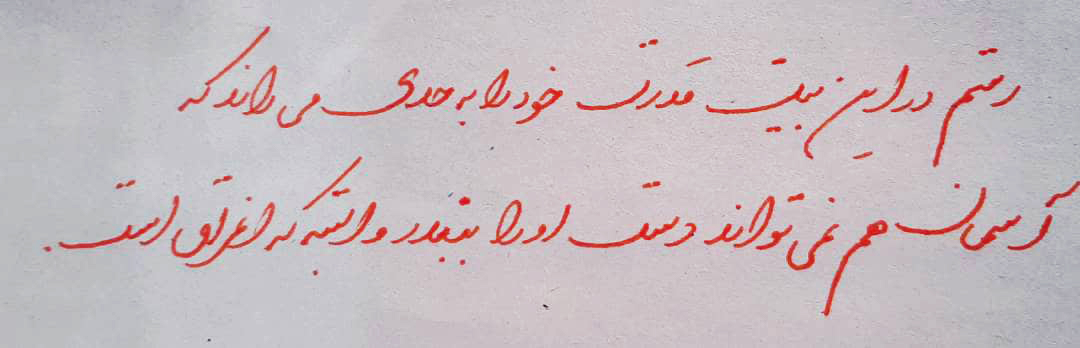 رستم در این بیت قدرت خود را به حدی می داند که
آسمان هم نمی تواند دست او را ببندد و البته که اغراق است.